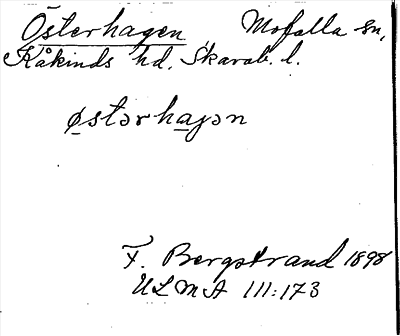 Österhagen, Mofalla sn,
Kåkinds hd. Skarab. l.
østərhaɡən
F. Bergstrand 1898
ULMA 111:173